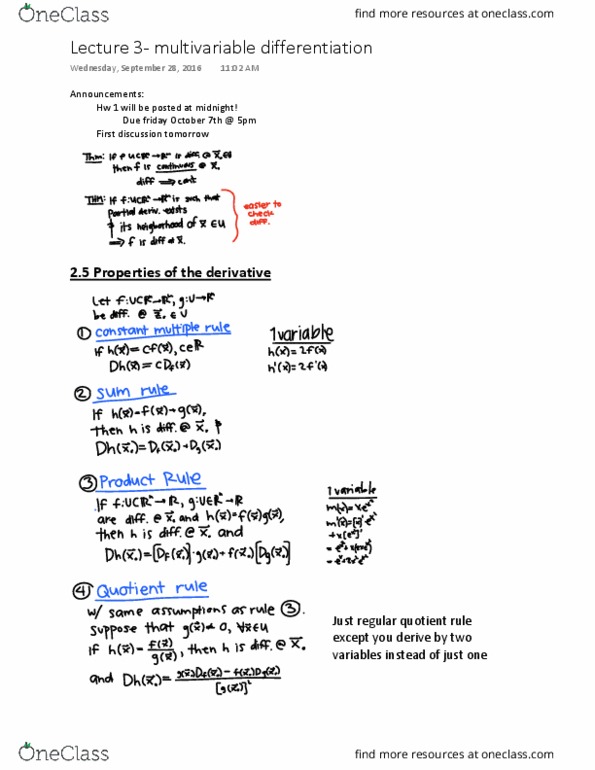 OneClass
find more resources at oneclass.com
Lecture 3- multivariable differentiation
Wednesday, September 28, 2016 11:02 AM
Announcements:
Hw 1 will be posted at midnight!
Due friday October 7th @ 5pm
First discussion tomorrow
Thm: If f: UCRⁿ→Rᵐ is diff @ x⃗.∈U
then f is continuous @ x⃗.
diff ⟹ cont
THM: If f:UCRⁿ→Rᵐ is such that
Partial deriv. exists
its neighborhood of x⃗ ∈U
⟹ f is diff at x⃗.
easier to
check
diff.
2.5 Properties of the derivative
Let f:UCRⁿ→Rᵐ, g:U→Rᵐ
be diff. @ x⃗. ∈ U
① constant multiple rule
If h(x⃗)=cf(x⃗), c∈R
Dh(x⃗)=cDf(x⃗)
1 variable
h(x)=2f(x)
h'(x)=2f'(x)
② sum rule
If h(x⃗)=f(x⃗)+g(x⃗),
then h is diff. @ x⃗.
Dh(x⃗.)=Df(x⃗.)+Dg(x⃗.)
③ Product Rule
If f:UCRⁿ→R, g:U∈Rⁿ→R
are diff. @ x⃗. and h(x⃗)=f(x⃗)g(x⃗),
then h is diff. @ x⃗. and
Dh(x⃗.)=[Df(x⃗.)]·g(x⃗.)+f(x⃗.)[Dg(x⃗.)]
1 variable
④ Quotient rule
w/ same assumptions as rule ③.
suppose that g(x⃗)≠0, ∀x⃗∈U
If h(x⃗)=f(x⃗)/g(x⃗), then h is diff. @ x⃗.
and Dh(x⃗.)=g(x⃗.)Df(x⃗.)−f(x⃗.)Dg(x⃗.)/[g(x⃗.)]²
Just regular quotient rule
except you derive by two
variables instead of just one
OneClass
find more resources at oneclass.com